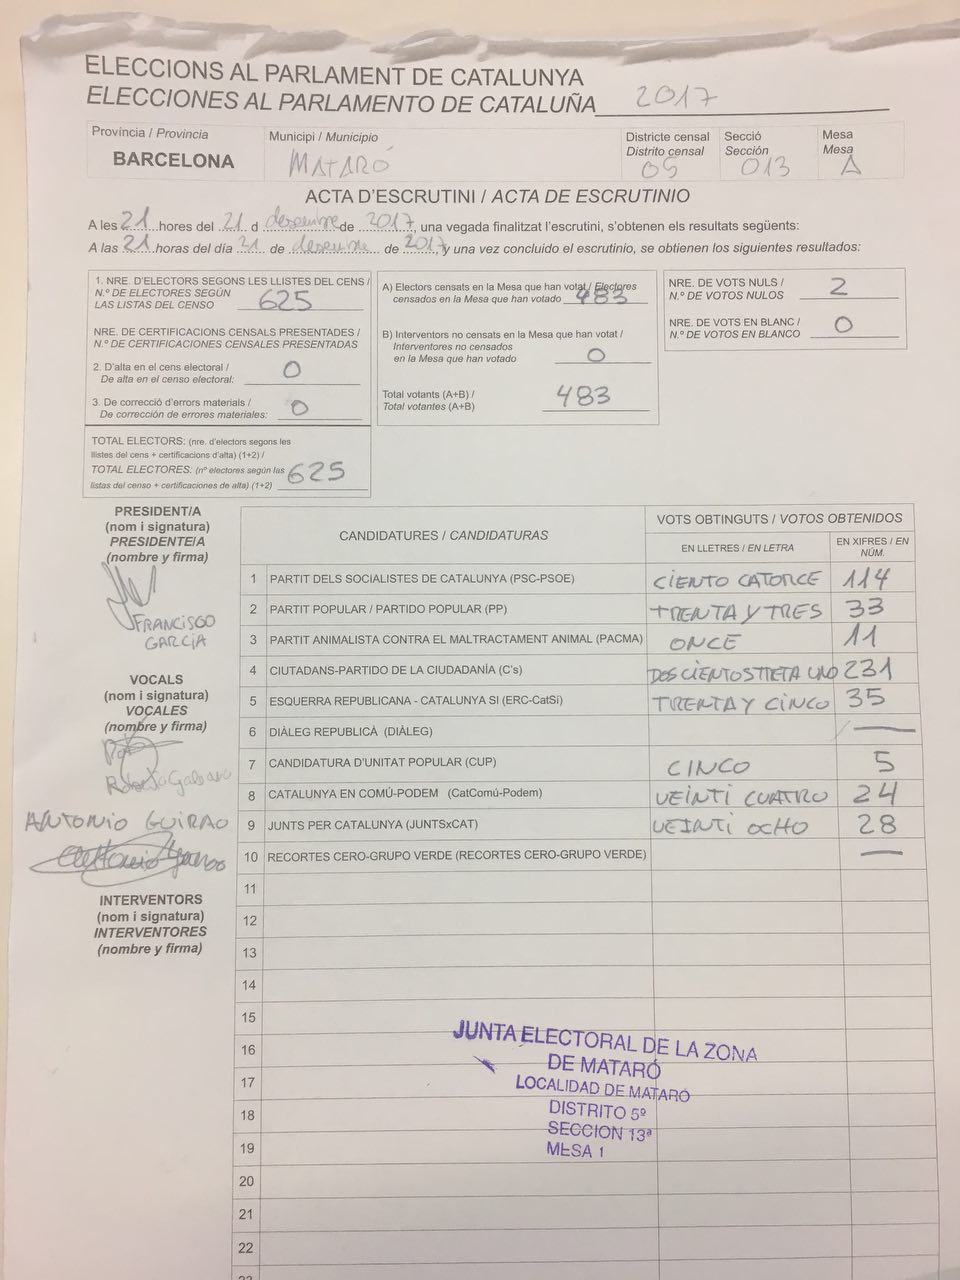 ELECCIONS AL PARLAMENT DE CATALUNYA
ELECCIONES AL PARLAMENTO DE CATALUÑA 2017
Província / Provincia
BARCELONA
Municipi / Municipio
MATARÓ
Districte censal
Distrito censal
05
Secció
Sección
013
Mesa
Mesa
A
ACTA D'ESCRUTINI / ACTA DE ESCRUTINIO
A les 21 hores del 21 d desembre de 2017, una vegada finalitzat l'escrutini, s'obtenen els resultats següents:
A las 21 horas del día 21 de desembre de 2017, y una vez concluido el escrutinio, se obtienen los siguientes resultados:
1. NRE. D'ELECTORS SEGONS LES LLISTES DEL CENS /
N.º DE ELECTORES SEGÚN
LAS LISTAS DEL CENSO 625
NRE. DE CERTIFICACIONS CENSALS PRESENTADES /
N.º DE CERTIFICACIONES CENSALES PRESENTADAS
2. D'alta en el cens electoral /
De alta en el censo electoral: 0
3. De correcció d'errors materials /
De corrección de errores materiales: 0
TOTAL ELECTORS: (nre. d'electors segons les
llistes del cens + certificacions d'alta) (1+2) /
TOTAL ELECTORES: (nº electores según las
listas del censo + certificaciones de alta) (1+2) 625
A) Electors censats en la Mesa que han votat / Electores
censados en la Mesa que han votado 483
B) Interventors no censats en la Mesa que han votat /
Interventores no censados
en la Mesa que han votado 0
Total votants (A+B) /
Total votantes (A+B) 483
NRE. DE VOTS NULS /
N.º DE VOTOS NULOS 2
NRE. DE VOTS EN BLANC /
N.º DE VOTOS EN BLANCO 0
PRESIDENT/A
(nom i signatura)
PRESIDENTE/A
(nombre y firma)
FRANCISCO
GARCIA
VOCALS
(nom i signatura)
VOCALES
(nombre y firma)
ANTONIO GUIRAO
INTERVENTORS
(nom i signatura)
INTERVENTORES
(nombre y firma)
CANDIDATURES / CANDIDATURAS
VOTS OBTINGUTS / VOTOS OBTENIDOS
EN LLETRES / EN LETRA
EN XIFRES / EN
NÚM.
1 PARTIT DELS SOCIALISTES DE CATALUNYA (PSC-PSOE) CIENTO CATORCE 114
2 PARTIT POPULAR / PARTIDO POPULAR (PP) TRENTA Y TRES 33
3 PARTIT ANIMALISTA CONTRA EL MALTRACTAMENT ANIMAL (PACMA) ONCE 11
4 CIUTADANS-PARTIDO DE LA CIUDADANÍA (C's) DOSCIENTOS UNO 231
5 ESQUERRA REPUBLICANA - CATALUNYA SI (ERC-CatSí) TRENTA Y CINCO 35
6 DIÀLEG REPUBLICÀ (DIÀLEG) —
7 CANDIDATURA D'UNITAT POPULAR (CUP) CINCO 5
8 CATALUNYA EN COMÚ-PODEM (CatComú-Podem) VEINTI CUATRO 24
9 JUNTS PER CATALUNYA (JUNTSxCAT) VEINTI OCHO 28
10 RECORTES CERO-GRUPO VERDE (RECORTES CERO-GRUPO VERDE) —
11
12
13
14
15
16
17
18
19
20
21
22
JUNTA ELECTORAL DE LA ZONA
DE MATARÓ
LOCALIDAD DE MATARÓ
DISTRITO 5º
SECCION 13ª
MESA 1